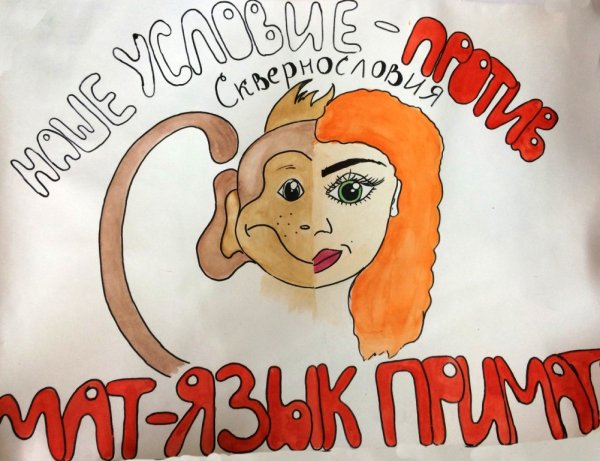 НАШЕ УСЛОВИЕ - ПРОТИВ
Сквернословия
МАТ-ЯЗЫК ПРИМАТ